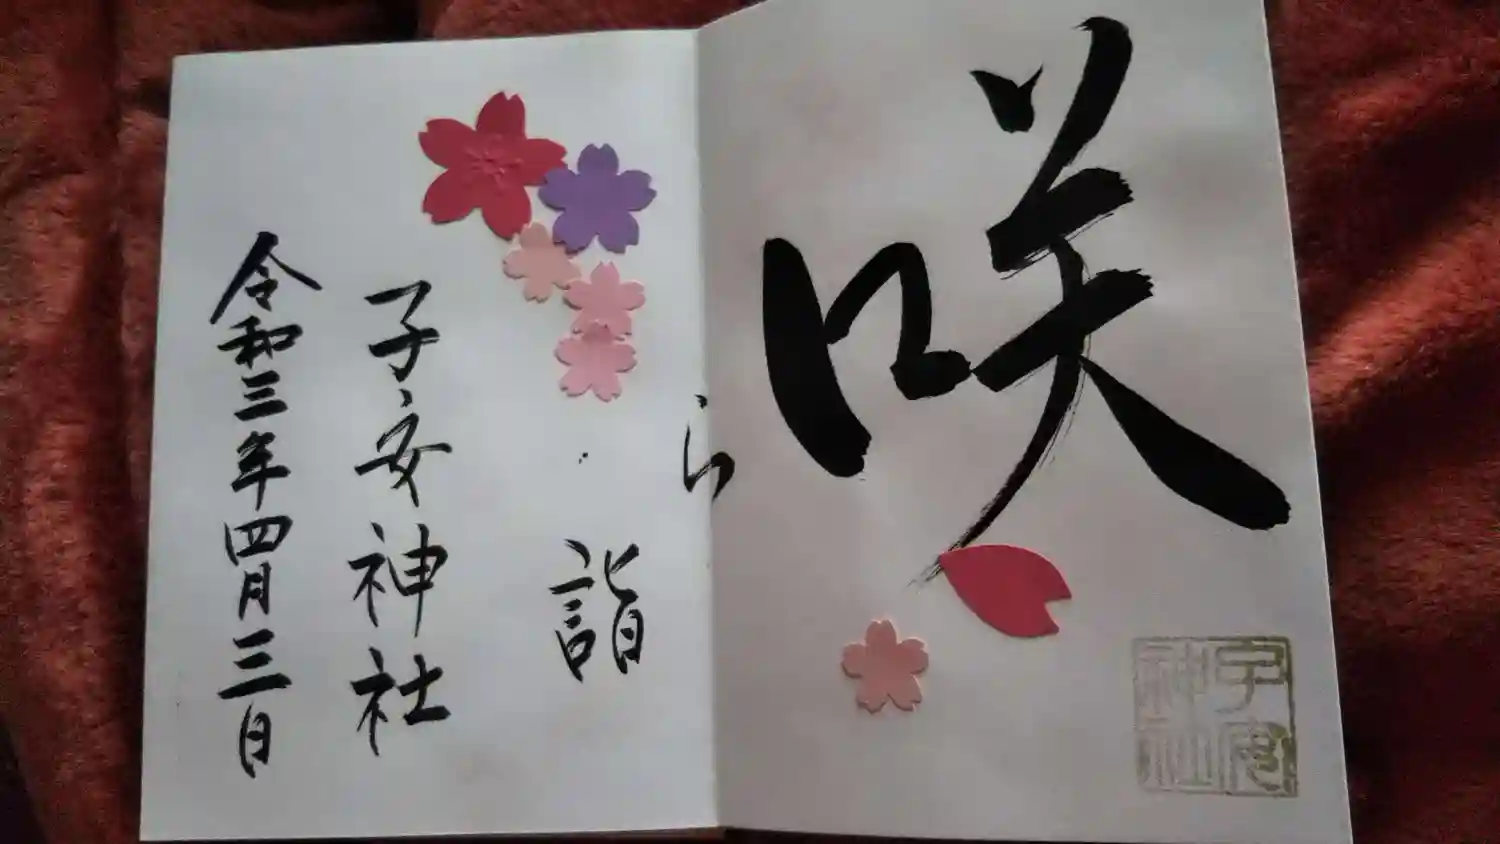 咲
ら
詣
子安神社
令和三年四月三日
子安神社